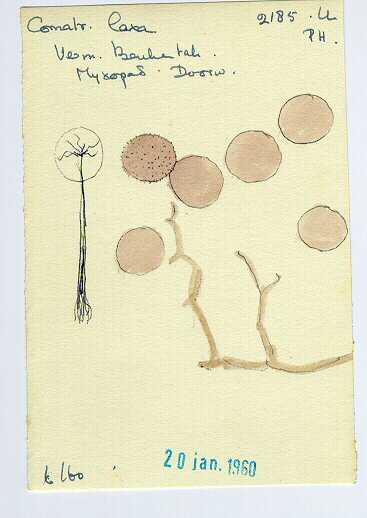 Comatr. laxa
2185. U
PH.
Verm. Beuketah.
Myxopad. Doorw.
k 160
20 jan. 1960